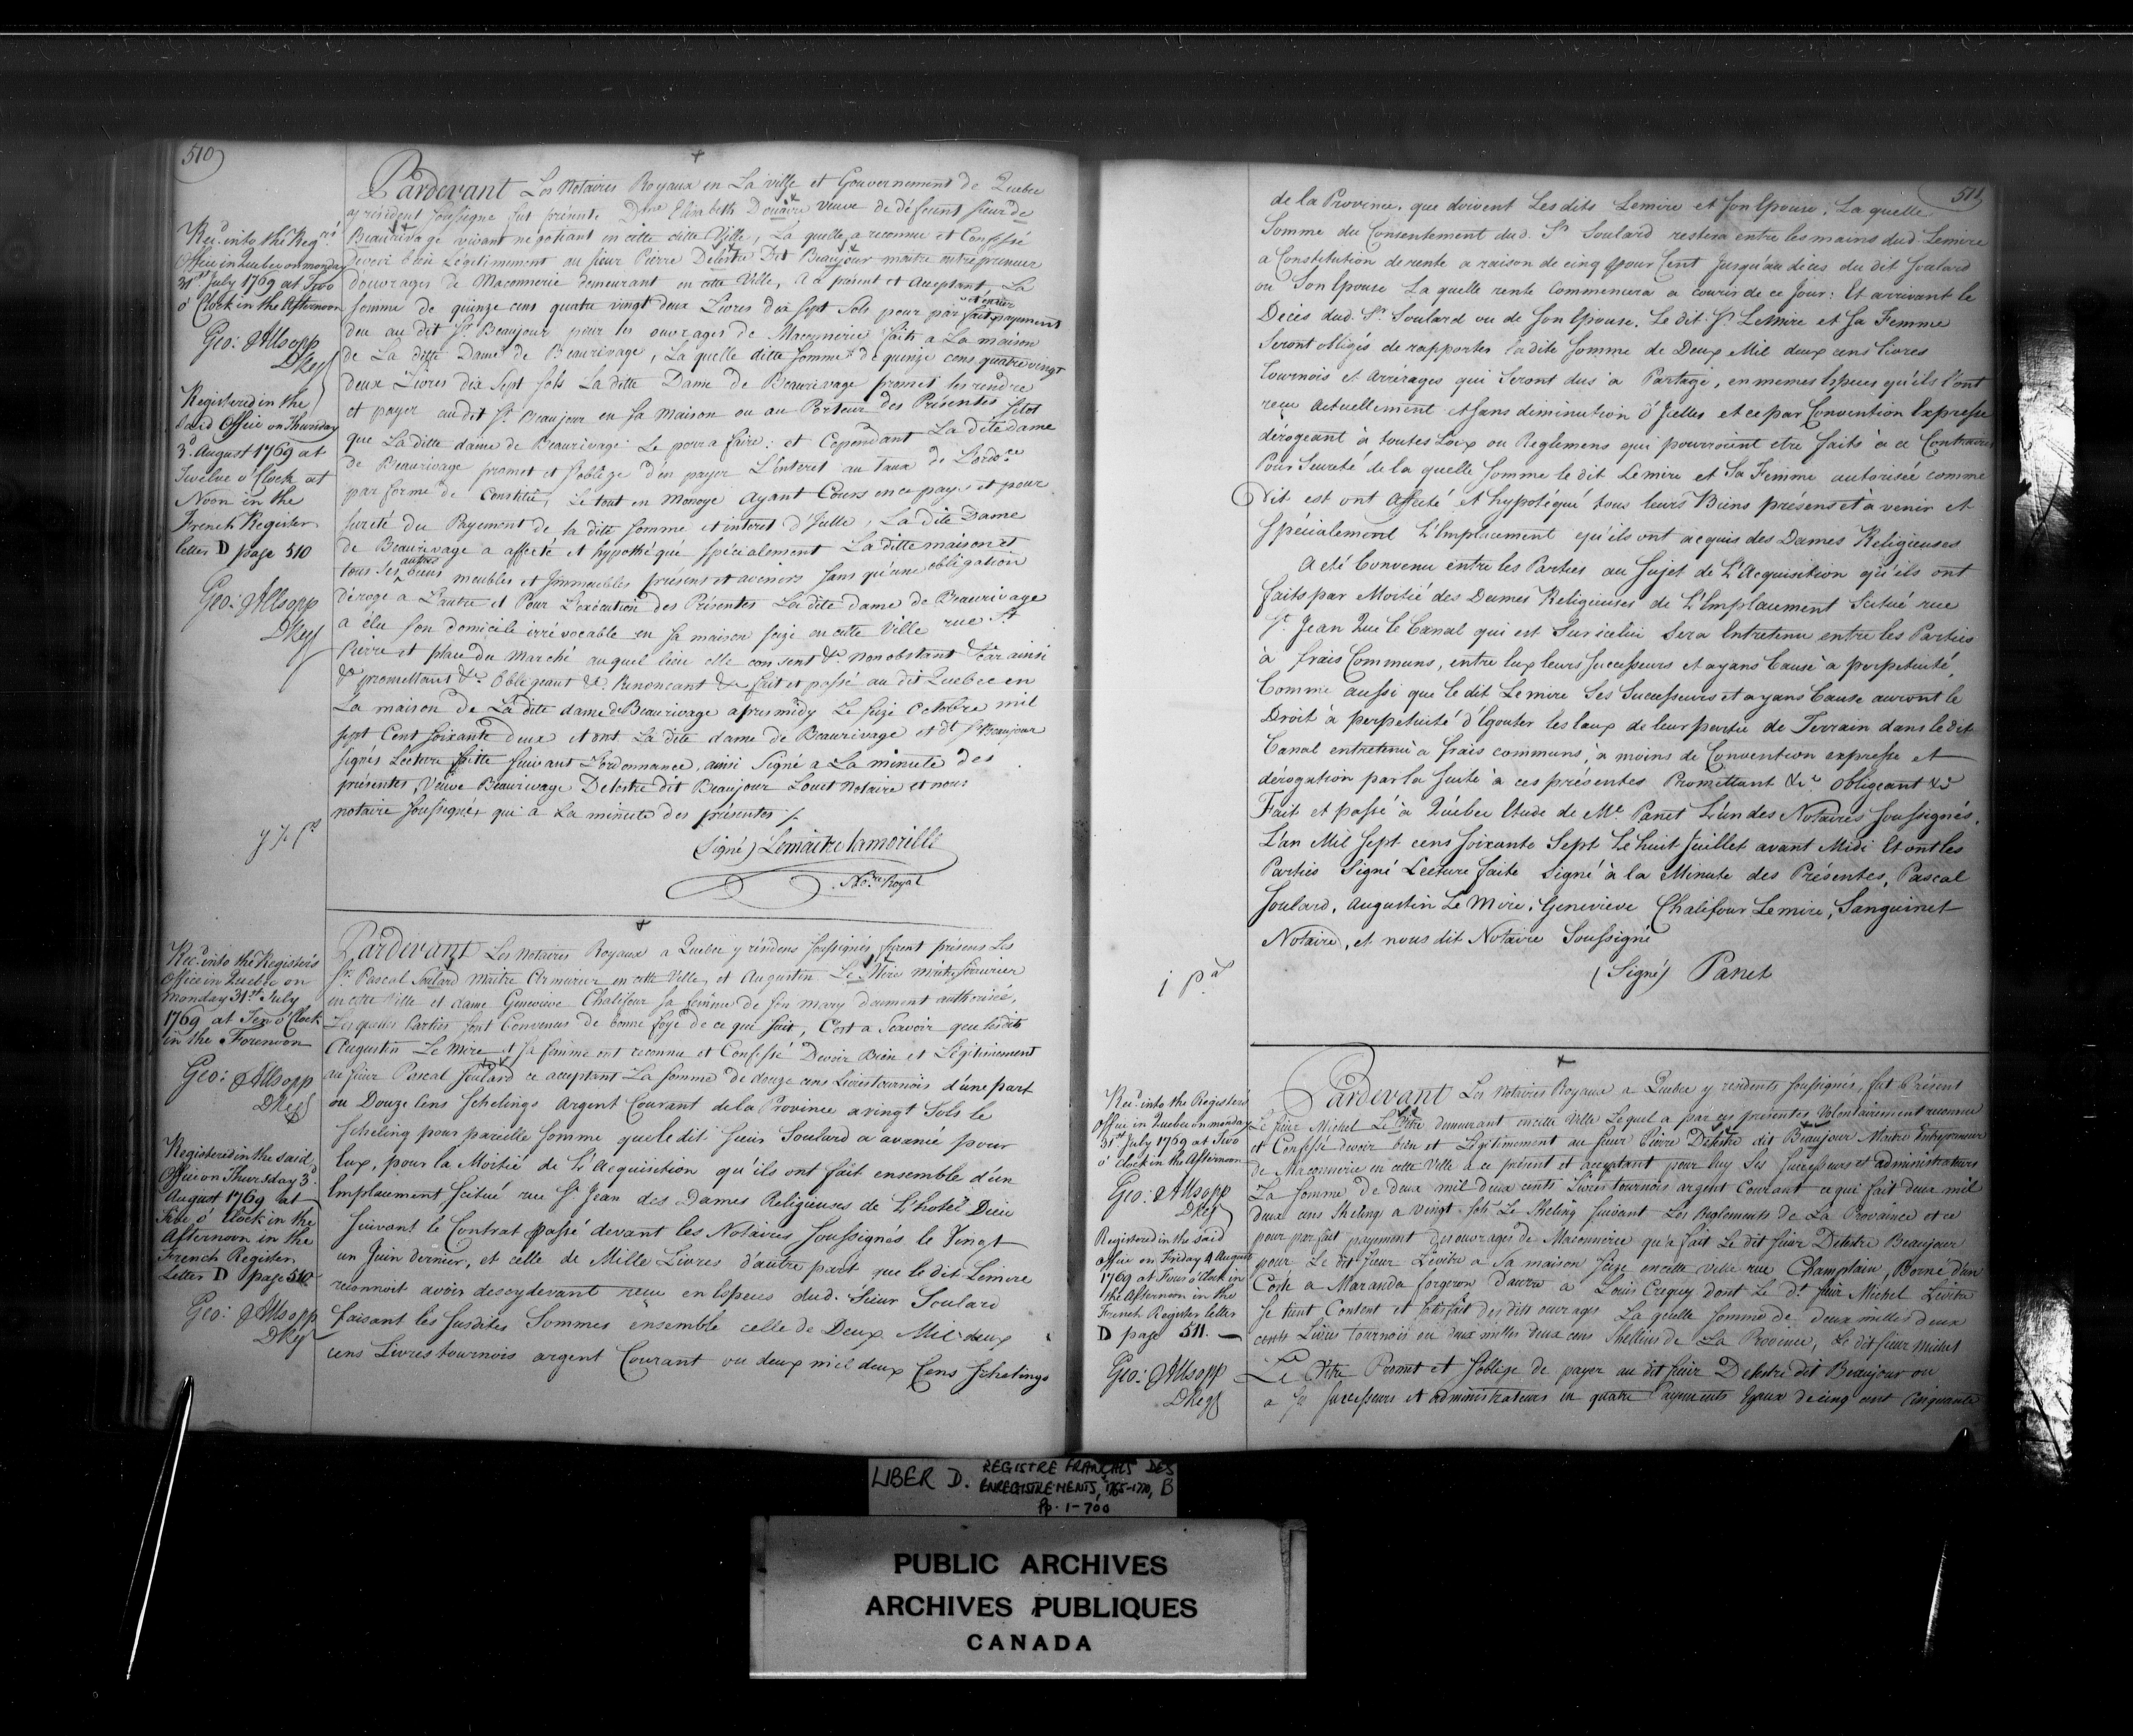 510
Pardevant Les Notaires Royaux en La ville et Gouvernement de Quebec
y résident soussigne fut présente D.me Elizabeth Douaire veuve de défeunt sieur de
Beaurivage vivant négotiant en cette ditte Ville, La quelle a reconnu et Confessé
devoir bien Légitimement au sieur Pierre Delestre Dit Beaujour maitre entrepreneur
d'ouvrages de Maconnerie demeurant en cette Ville, a ce présent et Acceptant, La
somme de quinze cens quatre vingt deux Livres dix sept Sols pour par fait et entier payement
deu au dit S.r Beaujour pour les ouvrages de Maconnerie faits a La maison
de La ditte Dame de Beaurivage, La quelle ditte somme de quinze cens quatre vingt
deux Livres dix Sept sols La ditte Dame de Beaurivage promet les rendre
et payer au dit S.r Beaujour en sa maison ou au Porteur des Présentes sitot
que La ditte dame de Beaurivage Le poura faire: et Cependant La dite dame
de Beaurivage promet et soblige d'en payer L'interet au Taux de L'ord.ce
par forme de Constitu, Le tout en Monoye Ayant Cours en ce pays et pour
sureté du Payement de la dite somme et interet d'Jcelle, La dite Dame
de Beaurivage a affecté et hypothéqué spécialement La ditte maison et
tous ses autres biens meubles et Jmmeubles présent et avenirs sans qu'une obligation
déroge a L'autre et Pour L'exécution des Présentes La dite dame de Beaurivage
a élu son domicile irrévocable en sa maison seize en cette Ville rue S.t
Pierre et place du Marché auquel lieu elle consent &.a nonobstant &.a Car ainsi
&.a promettant &.a Obligeant &.a Renoncant &.a fait et passé au dit Quebec en
La maison de La dite dame de Beaurivage apres midy Le seize Octobre mil
sept Cent soixante deux et ont La dite dame de Beaurivage et d.t S.r Beaujour
signés Lecture faitte suivant L'ordonnance, ainsi Signé a La minute des
présentes, Veuve Beaurivage Delestre dit Beaujour Louet Notaire et nous
notaire soussignés qui a La minute des présentes /.
(Signé) Lemaitre Lamorille
No.re Royal
Rec.d into the Reg.rs
Office in Quebec on monday
31.st July 1769 at Two
o'Clock in the Afternoon
Geo: Allsopp
DReg
Registered in the
said Office on Thursday
3.d August 1769 at
Twelve o'Clock at
Noon in the
French Register
letter D page 510
Geo: Allsopp
DReg
Pardevant Les Notaires Royaux a Quebec y résidens soussignés, furent présens Les
S.rs Pascal Soulard Maitre Armurier en cette Ville, et Augustin Le Mire maitre serrurier
en cette Ville et dame Genevieve Chalifour sa femme de son mary duement authorisée,
Les quelles Parties sont Convenus de bonne foye de ce qui suit, C'est a Scavoir que lesdits
Augustin Le Mire et sa femme ont reconnu et Confessé Devoir Bien et Légitimement
au sieur Pascal Soulard ce acceptant La somme de douze cens Livres tournois d'une part
ou Douze Cens Schelings Argent Courant de la Province a vingt Sols le
Scheling pour pareille somme que le dit Sieur Soulard a avancé pour
Eux, pour la Moitié de L'Acquisition qu'ils ont fait ensemble d'un
Emplacement Scitué rue S.t Jean des Dames Religieuses de L'hotel Dieu
suivant le Contrat passé devant les Notaires soussignés le Vingt
un Juin dernier, et celle de Mille Livres d'autre part que le dit Lemire
reconnoit avoir descydevant reçu en Especes dud. Sieur Soulard
faisant les susdites Sommes ensemble celle de Deux Mil deux
cens Livres tournois argent Courant ou deux mil deux Cens Schelings
Rec.d into the Register's
Office in Quebec on
Monday 31.st July
1769 at Ten o'Clock
in the Forenoon
Geo: Allsopp
DReg
Registered in the said
Office on Thursday 3.d
August 1769 at
Five o'Clock in the
Afternoon in the
French Register
Letter D page 510
Geo: Allsopp
DReg
511
de la Province, que doivent Les dits Lemire et son Epouse, La quelle
Somme du Consentement dud. S.r Soulard restera entre les mains dud. Lemire
a Constitution de rente a raison de cinq pour Cent Jusqu'au déces du dit Soulard
ou Son Epouse La quelle rente Commencera a courir de ce Jour: Et arrivant le
Déces dud. S.r Soulard ou de son Epouse, Le dit S.r LeMire et sa Femme
Seront obligés de rapporter la dite somme de Deux Mil deux cens livres
Tournois et Arrérages qui Seront dus à Partage, en memes Especes qu'ils l'ont
reçu Actuellement et sans diminution d'Jcelles et ce par Convention Expresse
dérogeant à toutes Loix ou Reglemens qui pourroient etre faits à ce Contraire
Pour Sureté de la quelle somme le dit Lemire et Sa Femme autorisée comme
Dit est ont Affecté et hypotéqué tous leurs Biens présens et à venir et
spécialement L'Emplacement qu'ils ont acquis des Dames Religieuses
A été Convenu entre les Parties au sujet de L'Acquisition qu'ils ont
faits par Moitié des Dames Religieuses de L'Emplacement Scitué rue
S.t Jean Que le Canal qui est Sur icelui sera Entretenu entre les Parties
à frais Communs, entre Eux leurs Successeurs et ayans Cause à perpetuité,
Comme aussi que le dit Lemire Ses Successeurs et ayans Cause auront le
Droit à perpetuité d'Egouter les Eaux de leur partie de Terrain dans le dit
Canal entretenu à frais communs, à moins de Convention expresse et
dérogation par la suite à ces présentes Promettant &c.a obligeant &c.a
Fait et passé à Québec Etude de M.e Panet L'un des Notaires soussignés.
L'an Mil Sept cens soixante Sept Le huit Juillet avant Midi Et ont les
Parties Signé Lecture faite signé à la Minute des Présentes, Pascal
Soulard, Augustin Le Mire, Genevieve Chalifour Lemire, Sanguinet
Notaire, et nous dit Notaire Soussigné
(Signé) Panet
Pardevant Les Notaires Royaux a Quebec y residents soussignés, fut Présent
Le sieur Michel Le Vitre demeurant en cette Ville Lequel a par ces présentes Volontairement reconnu
et Confessé devoir bien et Légitimement au sieur Pierre Delestre dit Beaujour Maitre Entrepreneur
de Maconnerie en cette Ville a ce présent et acceptant pour luy Ses successeurs et administrateurs
La Somme de deux mil deux cents Livres tournois argent Courant ce qui fait deux mil
deux cens Sheling a vingt sols Le Sheling suivant Les Reglements de La Province et ce
pour parfait payment des ouvrages de Maconnerie qu'a fait Le dit sieur Delestre Beaujour
pour Le dit sieur Levitre a Sa maison seize en cette Ville rue Champlain, Borné d'un
Coste a Maranda forgeron d'autre a Louis Crequy dont Le d.t sieur Michel Levitre
se tient Content et satisfait des dits ouvrages La quelle somme de deux milles deux
cents Livres tournois ou deux milles deux cens Shellins de La Province, Le dit sieur Michel
Le Vitre Promet et soblige de payer au dit sieur Delestre dit Beaujour ou
a Ses successeurs et administrateurs en quatre Payements Egaux de cinq cent Cinquante
Rec.d into the Registers
Office in Quebec on monday
31.st July 1769 at Two
o'Clock in the Afternoon
Geo: Allsopp
DReg
Registered in the said
office on Friday 4 August
1769 at Four o'Clock in
the Afternoon in the
French Register letter
D page 511.
Geo: Allsopp
DReg
LIBER D. REGISTRE FRANÇAIS DES
ENREGISTREMENTS, 1765-1770, B
Pp. 1-700
PUBLIC ARCHIVES
ARCHIVES PUBLIQUES
CANADA